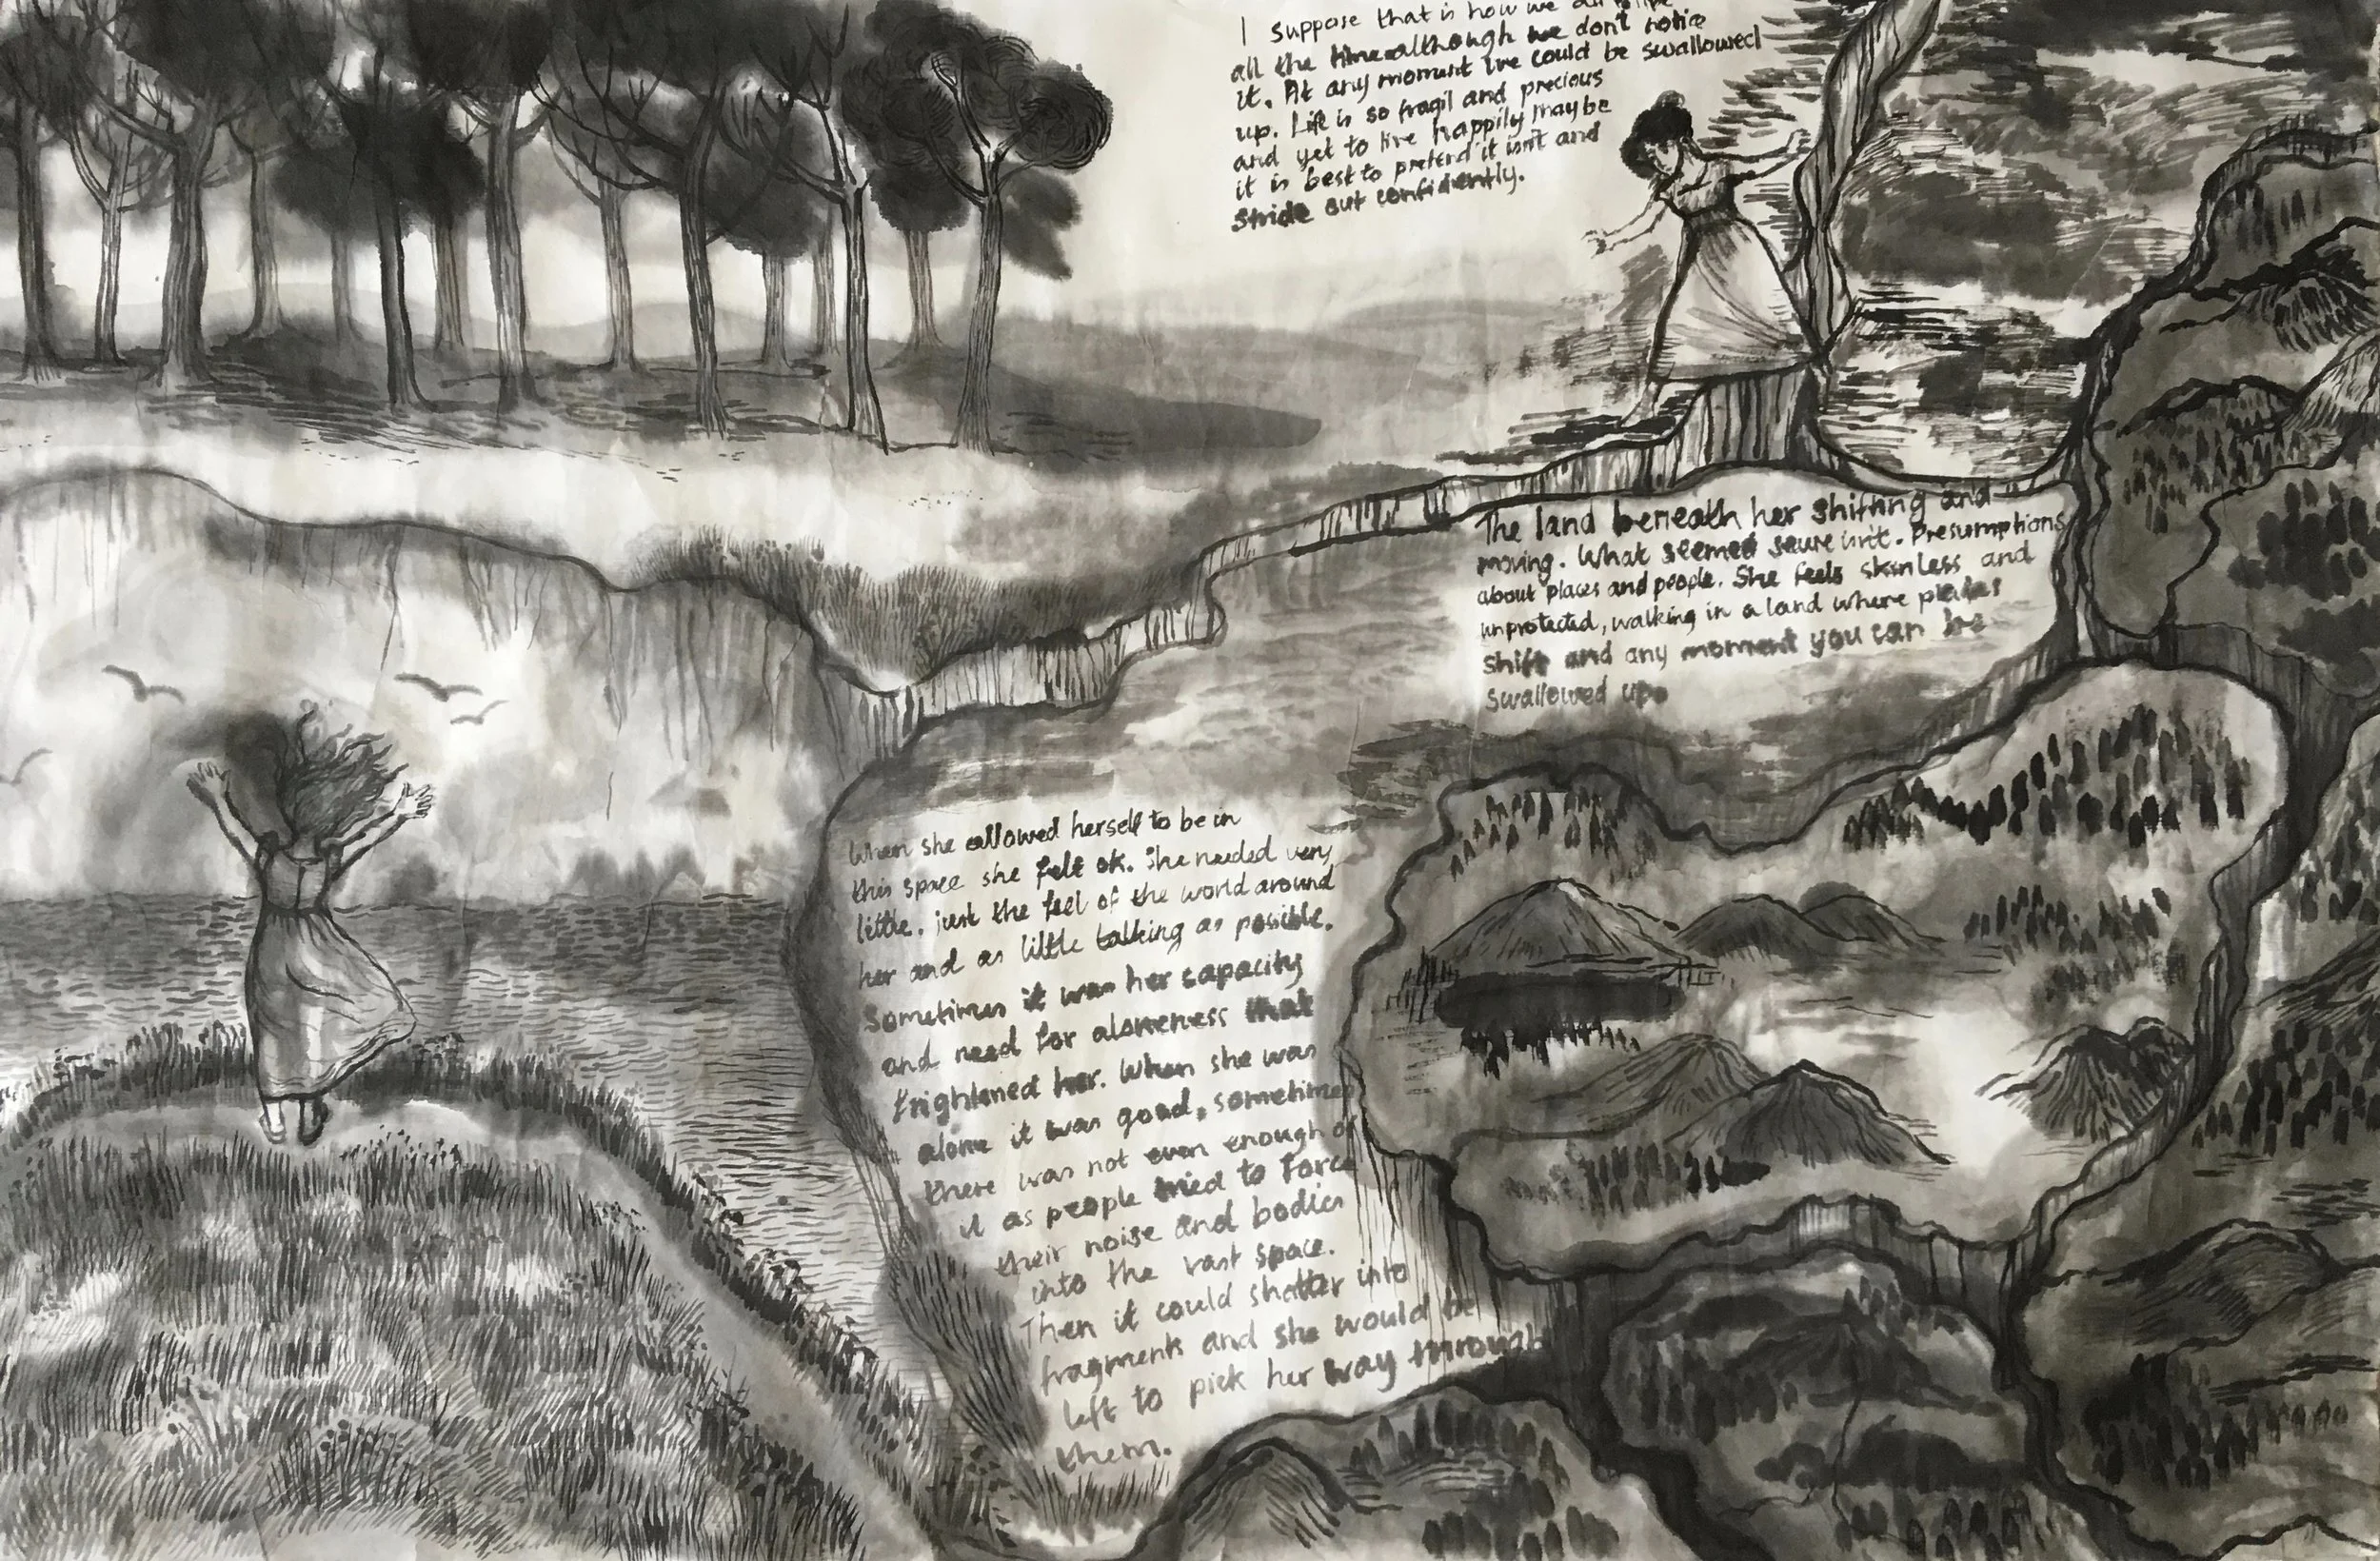 I suppose that is how we all
all the time although we don't notice
it. At any moment we could be swallowed
up. Life is so fragil and precious
and yet to live happily maybe
it is best to pretend it isn't and
stride out confidently.
The land beneath her shifting and
moving. What seemed saure isn't. Presumptions
about places and people. She feels skinless and
unprotected, walking in a land where plates
shift and any moment you can be
swallowed up.
When she allowed herself to be in
this space she felt ok. She needed very
little. just the feel of the world around
her and as little talking as possible.
Sometimes it was her capacity
and need for aloneness that
frightened her. When she was
alone it was good, sometimes
there was not even enough of
it as people tried to force
their noise and bodies
into the vast space.
Then it could shatter into
fragments and she would be
left to pick her way through
them.